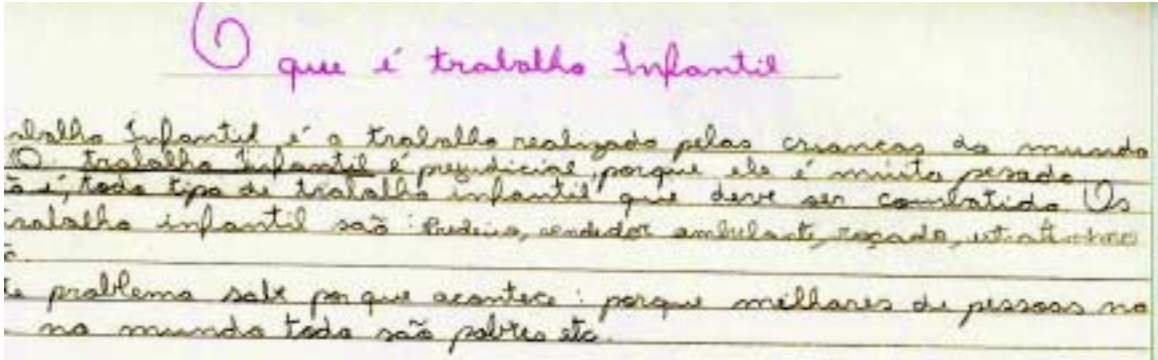 O que é trabalho Infantil
abalho Infantil é o trabalho realizado pelas crianças do mundo
O trabalho Infantil é prejudicial, porque ele é muito pesado
o é, todo tipo de trabalho infantil que deve ser combatido Os
trabalho infantil são: Pedreiro, vendedor ambulante, roçado,
te problema sabe por que acontece: porque milhares de pessoas no
no mundo todo são pobres etc.